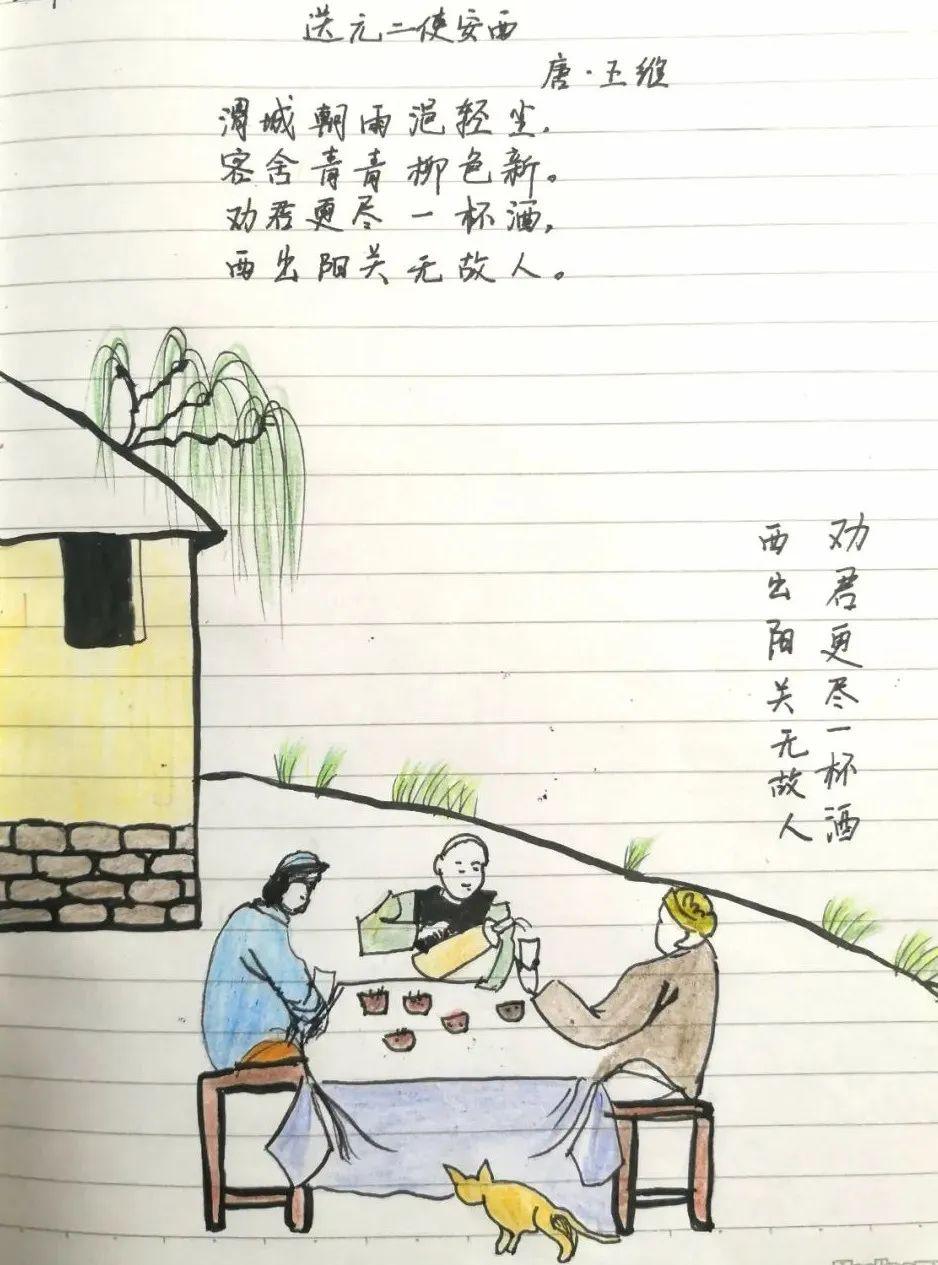 送元二使安西
唐·王维
渭城朝雨浥轻尘,
客舍青青柳色新。
劝君更尽一杯酒,
西出阳关无故人。
劝君更尽一杯酒
西出阳关无故人